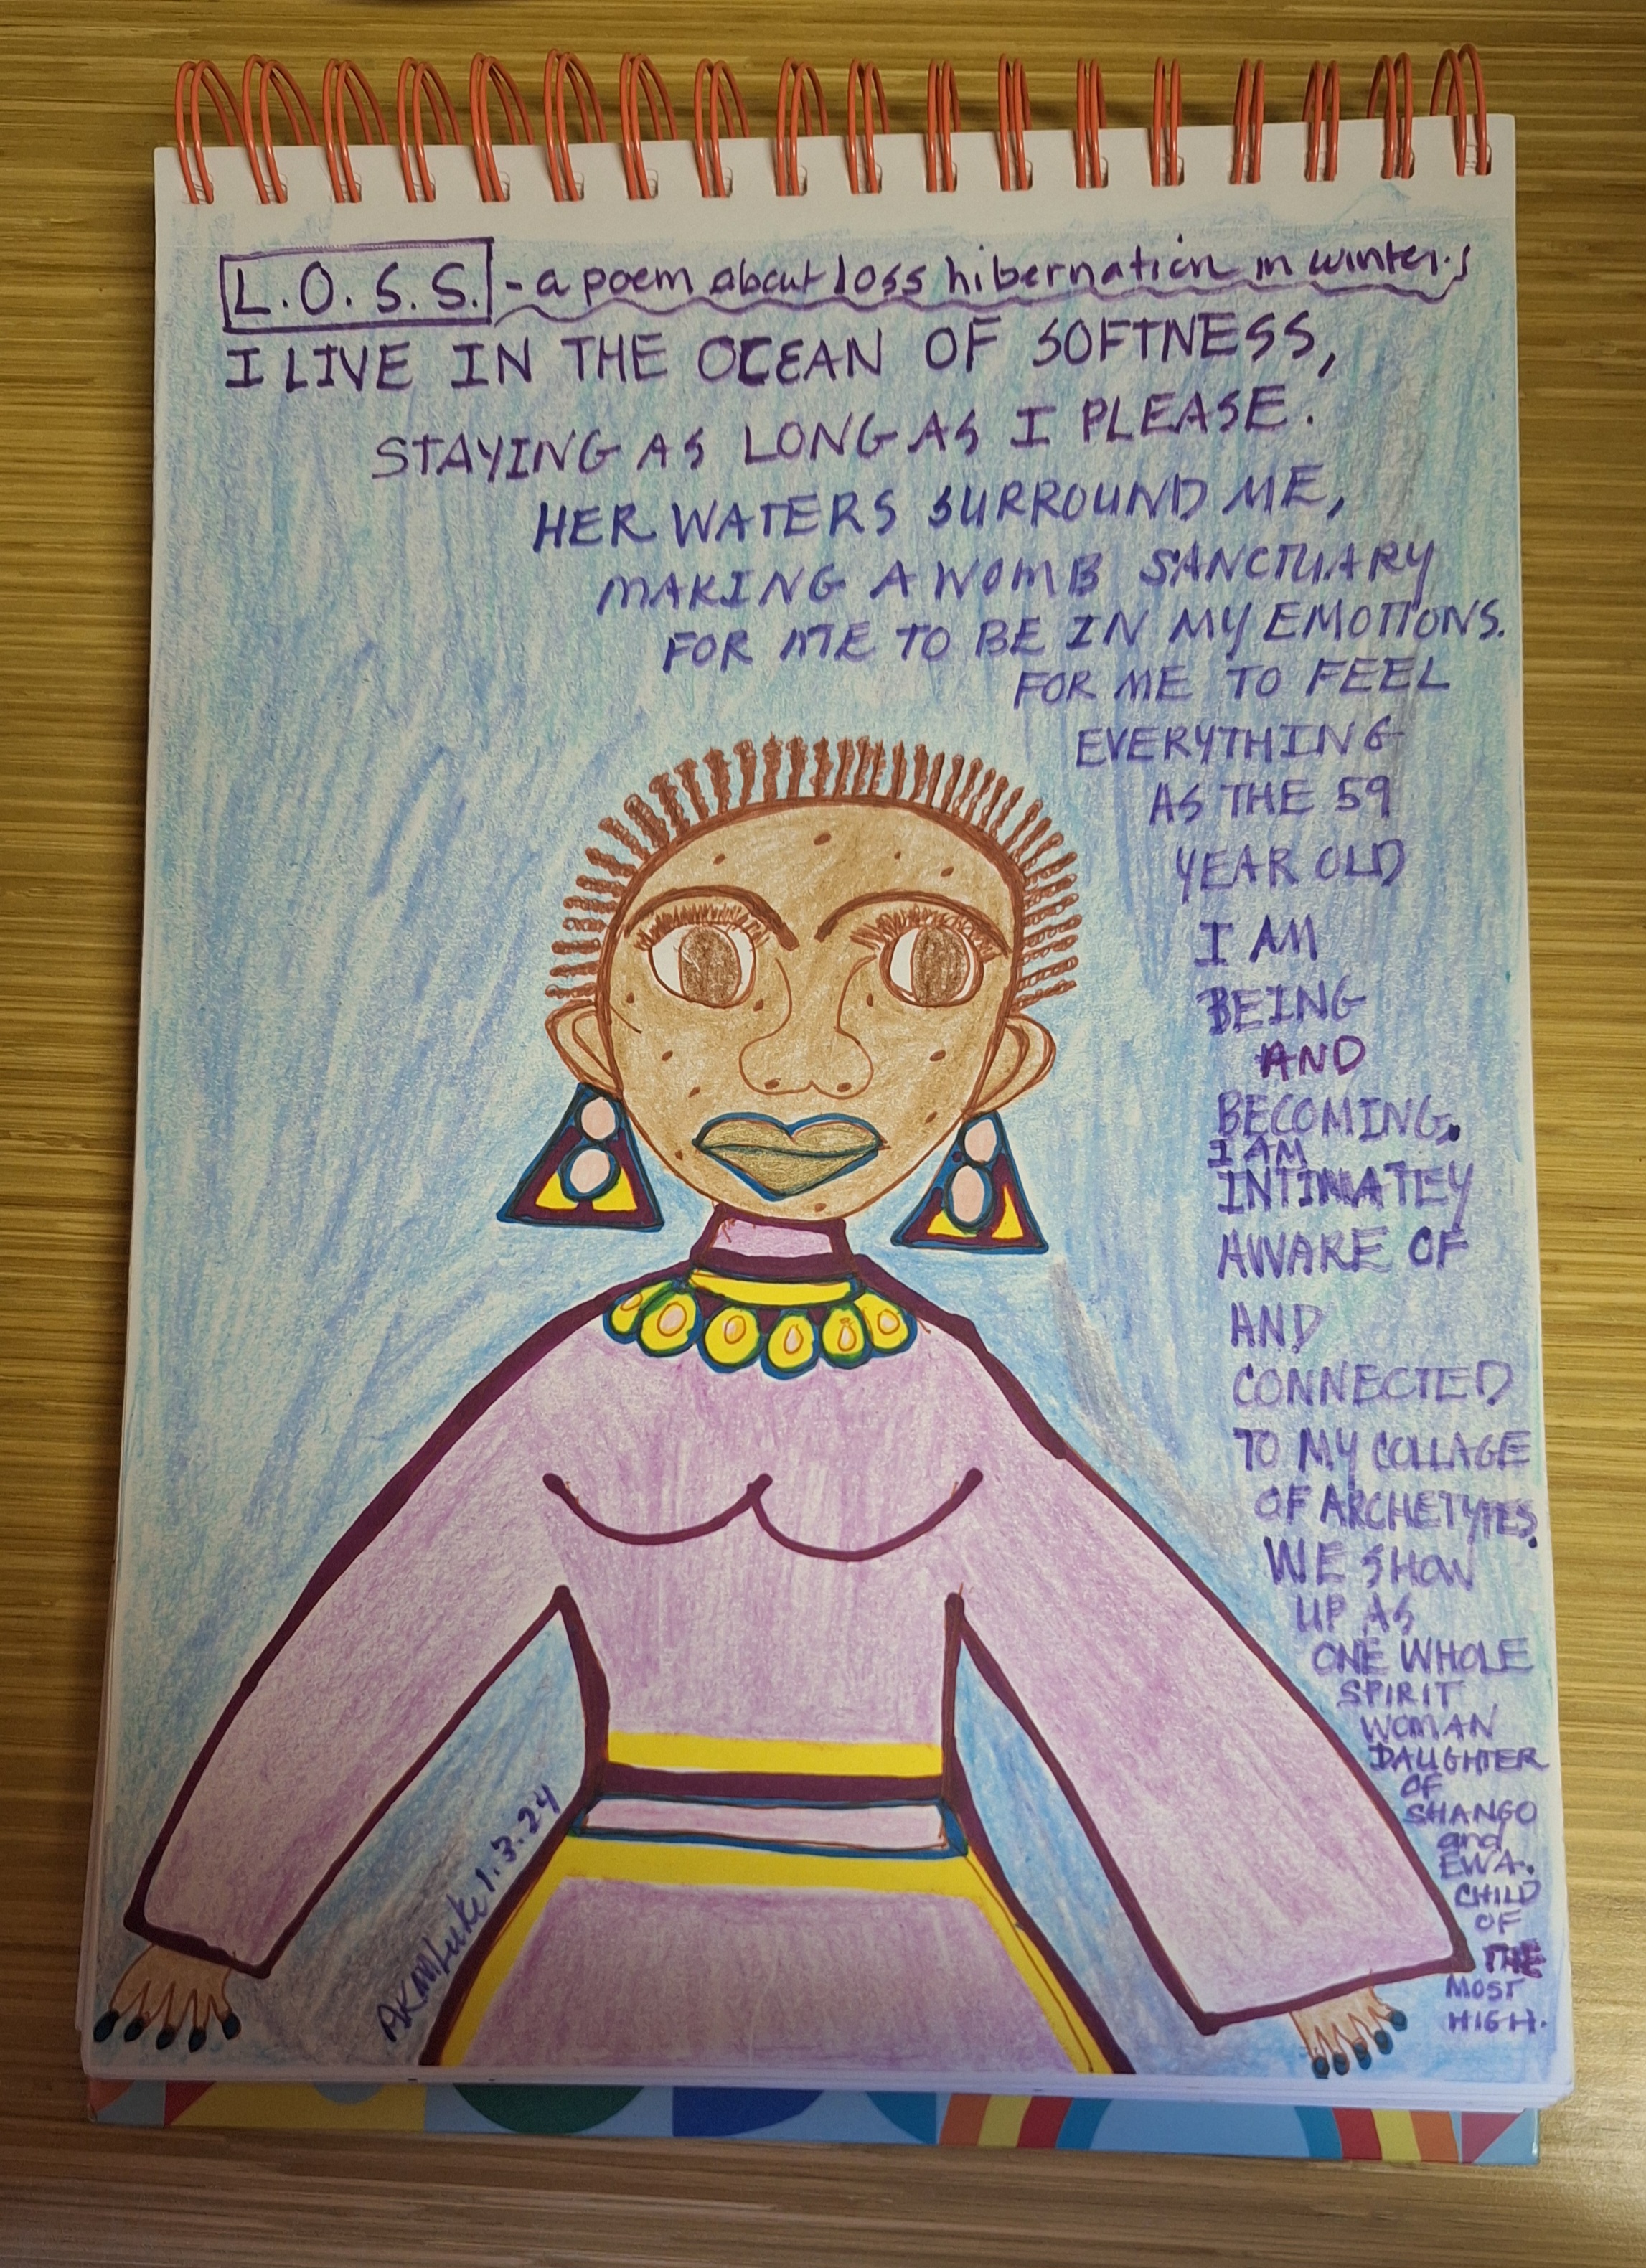 L.O.S.S. - a poem about loss hibernation in winter.
I LIVE IN THE OCEAN OF SOFTNESS,
STAYING AS LONG AS I PLEASE.
HER WATERS SURROUND ME,
MAKING A WOMB SANCTUARY
FOR ME TO BE IN MY EMOTIONS.
FOR ME TO FEEL
EVERYTHING
AS THE 59
YEAR OLD
I AM
BEING
AND
BECOMING.
I AM
INTIMATEY
AWARE OF
AND
CONNECTED
TO MY COLLAGE
OF ARCHETYPES.
WE SHOW
UP AS
ONE WHOLE
SPIRIT
WOMAN
DAUGHTER
OF
SHANGO
and
EWA.
CHILD
OF
THE
MOST
HIGH.
1.3.24